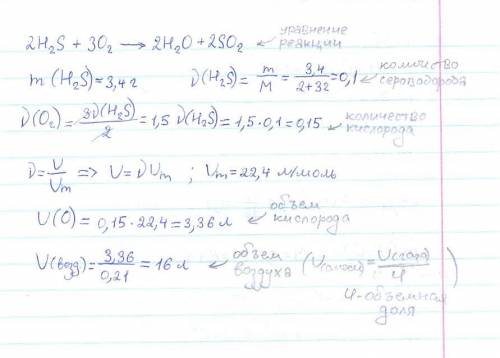 2H₂S + 3O₂ → 2H₂O + 2SO₂ уравнение реакции
m(H₂S) = 3,4 г ν(H₂S) = m/M = 3,4/(2+32) = 0,1 количество сероводорода
ν(O₂) = 3ν(H₂S)/2 = 1,5 ν(H₂S) = 1,5·0,1 = 0,15 количество кислорода
ν = V/Vm => V = νVm ; Vm = 22,4 л/моль
V(O) = 0,15·22,4 = 3,36 л объем кислорода
V(возд) = 3,36/0,21 = 16 л объем воздуха (V(смеси) = V(газа)/φ)
φ-объемная доля